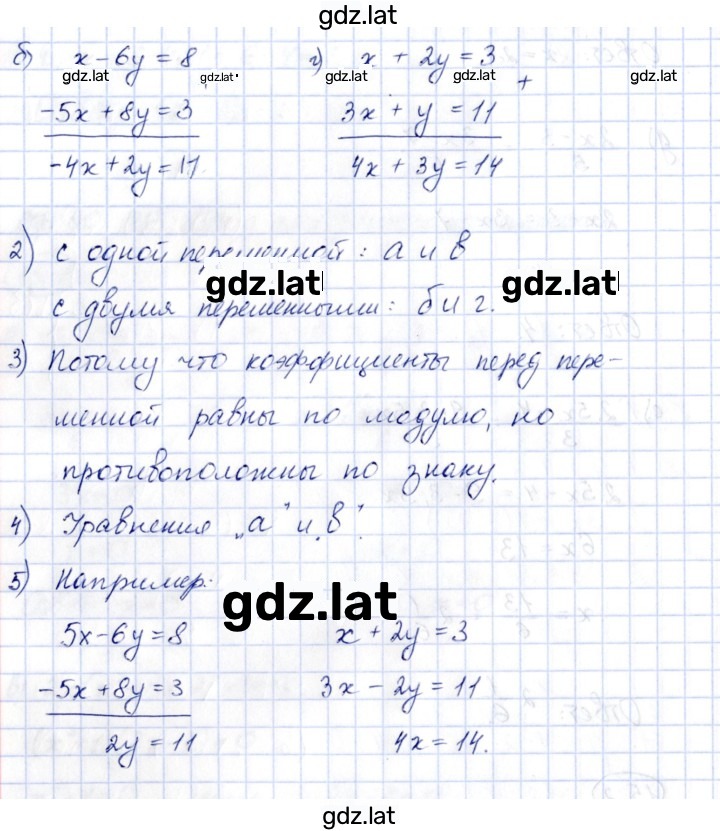 gdz.lat
б) x - 6y = 8 г) x + 2y = 3
gdz.lat gdz.lat gdz.lat gdz.lat gdz.lat
+
-5x + 8y = 3 3x + y = 11
-4x + 2y = 11 4x + 3y = 14
2) с одной переменной: а и в
gdz.lat gdz.lat
с двумя переменными: б и г.
3) Потому что коэффициенты перед пере-
менной равны по модулю, но
противоположны по знаку.
4) Уравнения „а" и „в".
5) Например:
gdz.lat
5x - 6y = 8 x + 2y = 3
-5x + 8y = 3 3x - 2y = 11
2y = 11 4x = 14.
gdz.lat